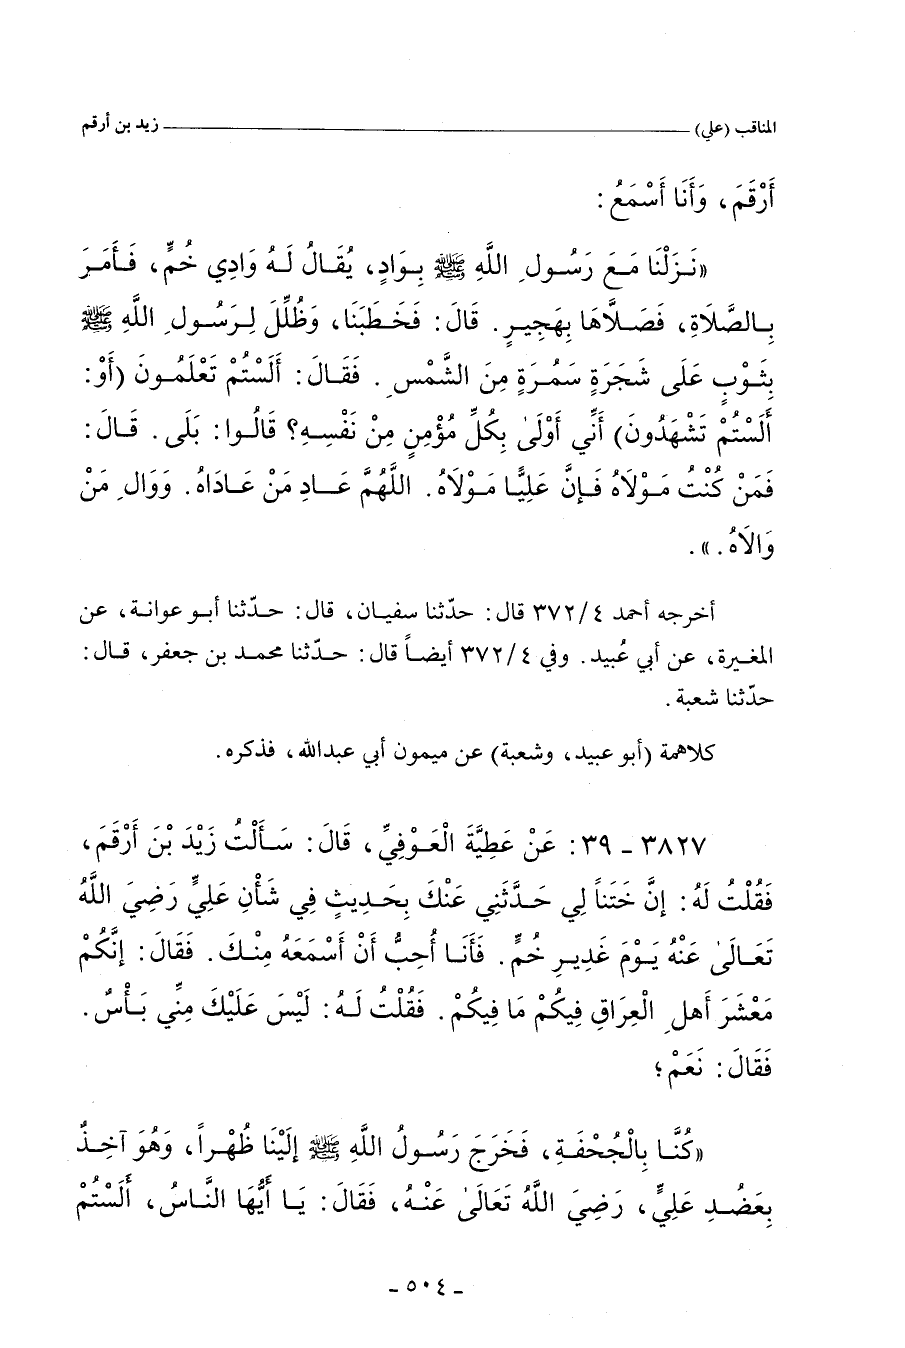 المناقب (علي) ــــــــــــ زيد بن أرقم
أَرْقَمَ، وَأَنَا أَسْمَعُ:
«نَزَلْنَا مَعَ رَسُولِ اللَّهِ ﷺ بِوَادٍ، يُقَالُ لَهُ وَادِي خُمٍّ، فَأَمَرَ
بِالصَّلَاةِ، فَصَلَّاهَا بِهَجِيرٍ. قَالَ: فَخَطَبَنَا، وَظُلِّلَ لِرَسُولِ اللَّهِ ﷺ
بِثَوْبٍ عَلَى شَجَرَةِ سَمُرَةٍ مِنَ الشَّمْسِ. فَقَالَ: أَلَسْتُمْ تَعْلَمُونَ (أَوْ:
أَلَسْتُمْ تَشْهَدُونَ) أَنِّي أَوْلَىٰ بِكُلِّ مُؤْمِنٍ مِنْ نَفْسِهِ؟ قَالُوا: بَلَى. قَالَ:
فَمَنْ كُنْتُ مَوْلَاهُ فَإِنَّ عَلِيًّا مَوْلَاهُ. اللَّهُمَّ عَادِ مَنْ عَادَاهُ. وَوَالِ مَنْ
وَالَاهُ.».
أخرجه أحمد ٣٧٢/٤ قال: حدّثنا سفيان، قال: حدّثنا أبو عوانة، عن
المغيرة، عن أبي عُبيد. وفي ٣٧٢/٤ أيضاً قال: حدّثنا محمد بن جعفر، قال:
حدّثنا شعبة.
كلاهمة (أبو عبيد، وشعبة) عن ميمون أبي عبدالله، فذكره.
٣٨٢٧ - ٣٩: عَنْ عَطِيَّةَ الْعَوْفِيِّ، قَالَ: سَأَلْتُ زَيْدَ بْنَ أَرْقَمَ،
فَقُلْتُ لَهُ: إِنَّ خَتَناً لِي حَدَّثَنِي عَنْكَ بِحَدِيثٍ فِي شَأْنِ عَلِيٍّ رَضِيَ اللَّهُ
تَعَالَىٰ عَنْهُ يَوْمَ غَدِيرِ خُمٍّ. فَأَنَا أُحِبُّ أَنْ أَسْمَعَهُ مِنْكَ. فَقَالَ: إِنَّكُمْ
مَعْشَرَ أَهلِ الْعِرَاقِ فِيكُمْ مَا فِيكُمْ. فَقُلْتُ لَهُ: لَيْسَ عَلَيْكَ مِنِّي بَأْسٌ.
فَقَالَ: نَعَمْ؛
«كُنَّا بِالْجُحْفَةِ، فَخَرَجَ رَسُولُ اللَّهِ ﷺ إِلَيْنَا ظُهْراً، وَهُوَ آخِذٌ
بِعَضُدِ عَلِيٍّ، رَضِيَ اللَّهُ تَعَالَىٰ عَنْهُ، فَقَالَ: يَا أَيُّهَا النَّاسُ، أَلَسْتُمْ
- ٥٠٤ -